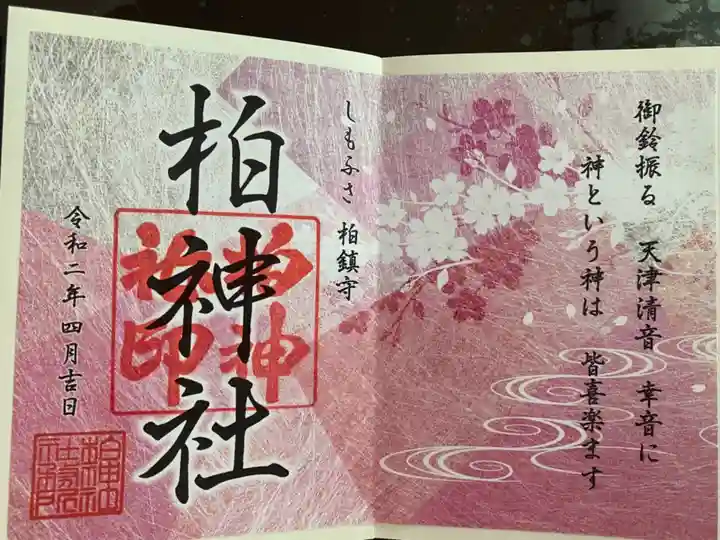 御鈴振る　天津清音　幸音に
神という神は　皆喜楽ます
しもふさ　柏鎮守
柏神社
令和二年四月吉日